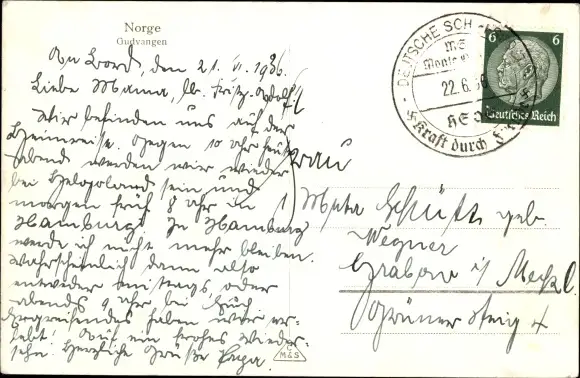 Norge
Gudvangen
An Bord, den 21. VI. 1936.
Liebe Mama, lb. Fritz, Adolf!
Wir befinden uns auf der
Heimreise. Gegen 10 Uhr heute
abend werden wir wieder
bei Helgoland sein und
morgen früh 8 Uhr in
Hamburg. In Hamburg
werde ich nicht mehr bleiben.
Wahrscheinlich dann also
entweder mittags oder
abends 9 Uhr bei Euch.
haben wir er-
lebt! Auf ein frohes Wieder-
sehn! Herzliche Grüße Papa.
M&S
DEUTSCHE SCH
MS
Monte
22.6.36
KdF
Kraft durch
6 6
Deutsches Reich
Frau
Meta Schütt geb.
Wegner
Grabow i/ Meckl.
Grüner Steig 4